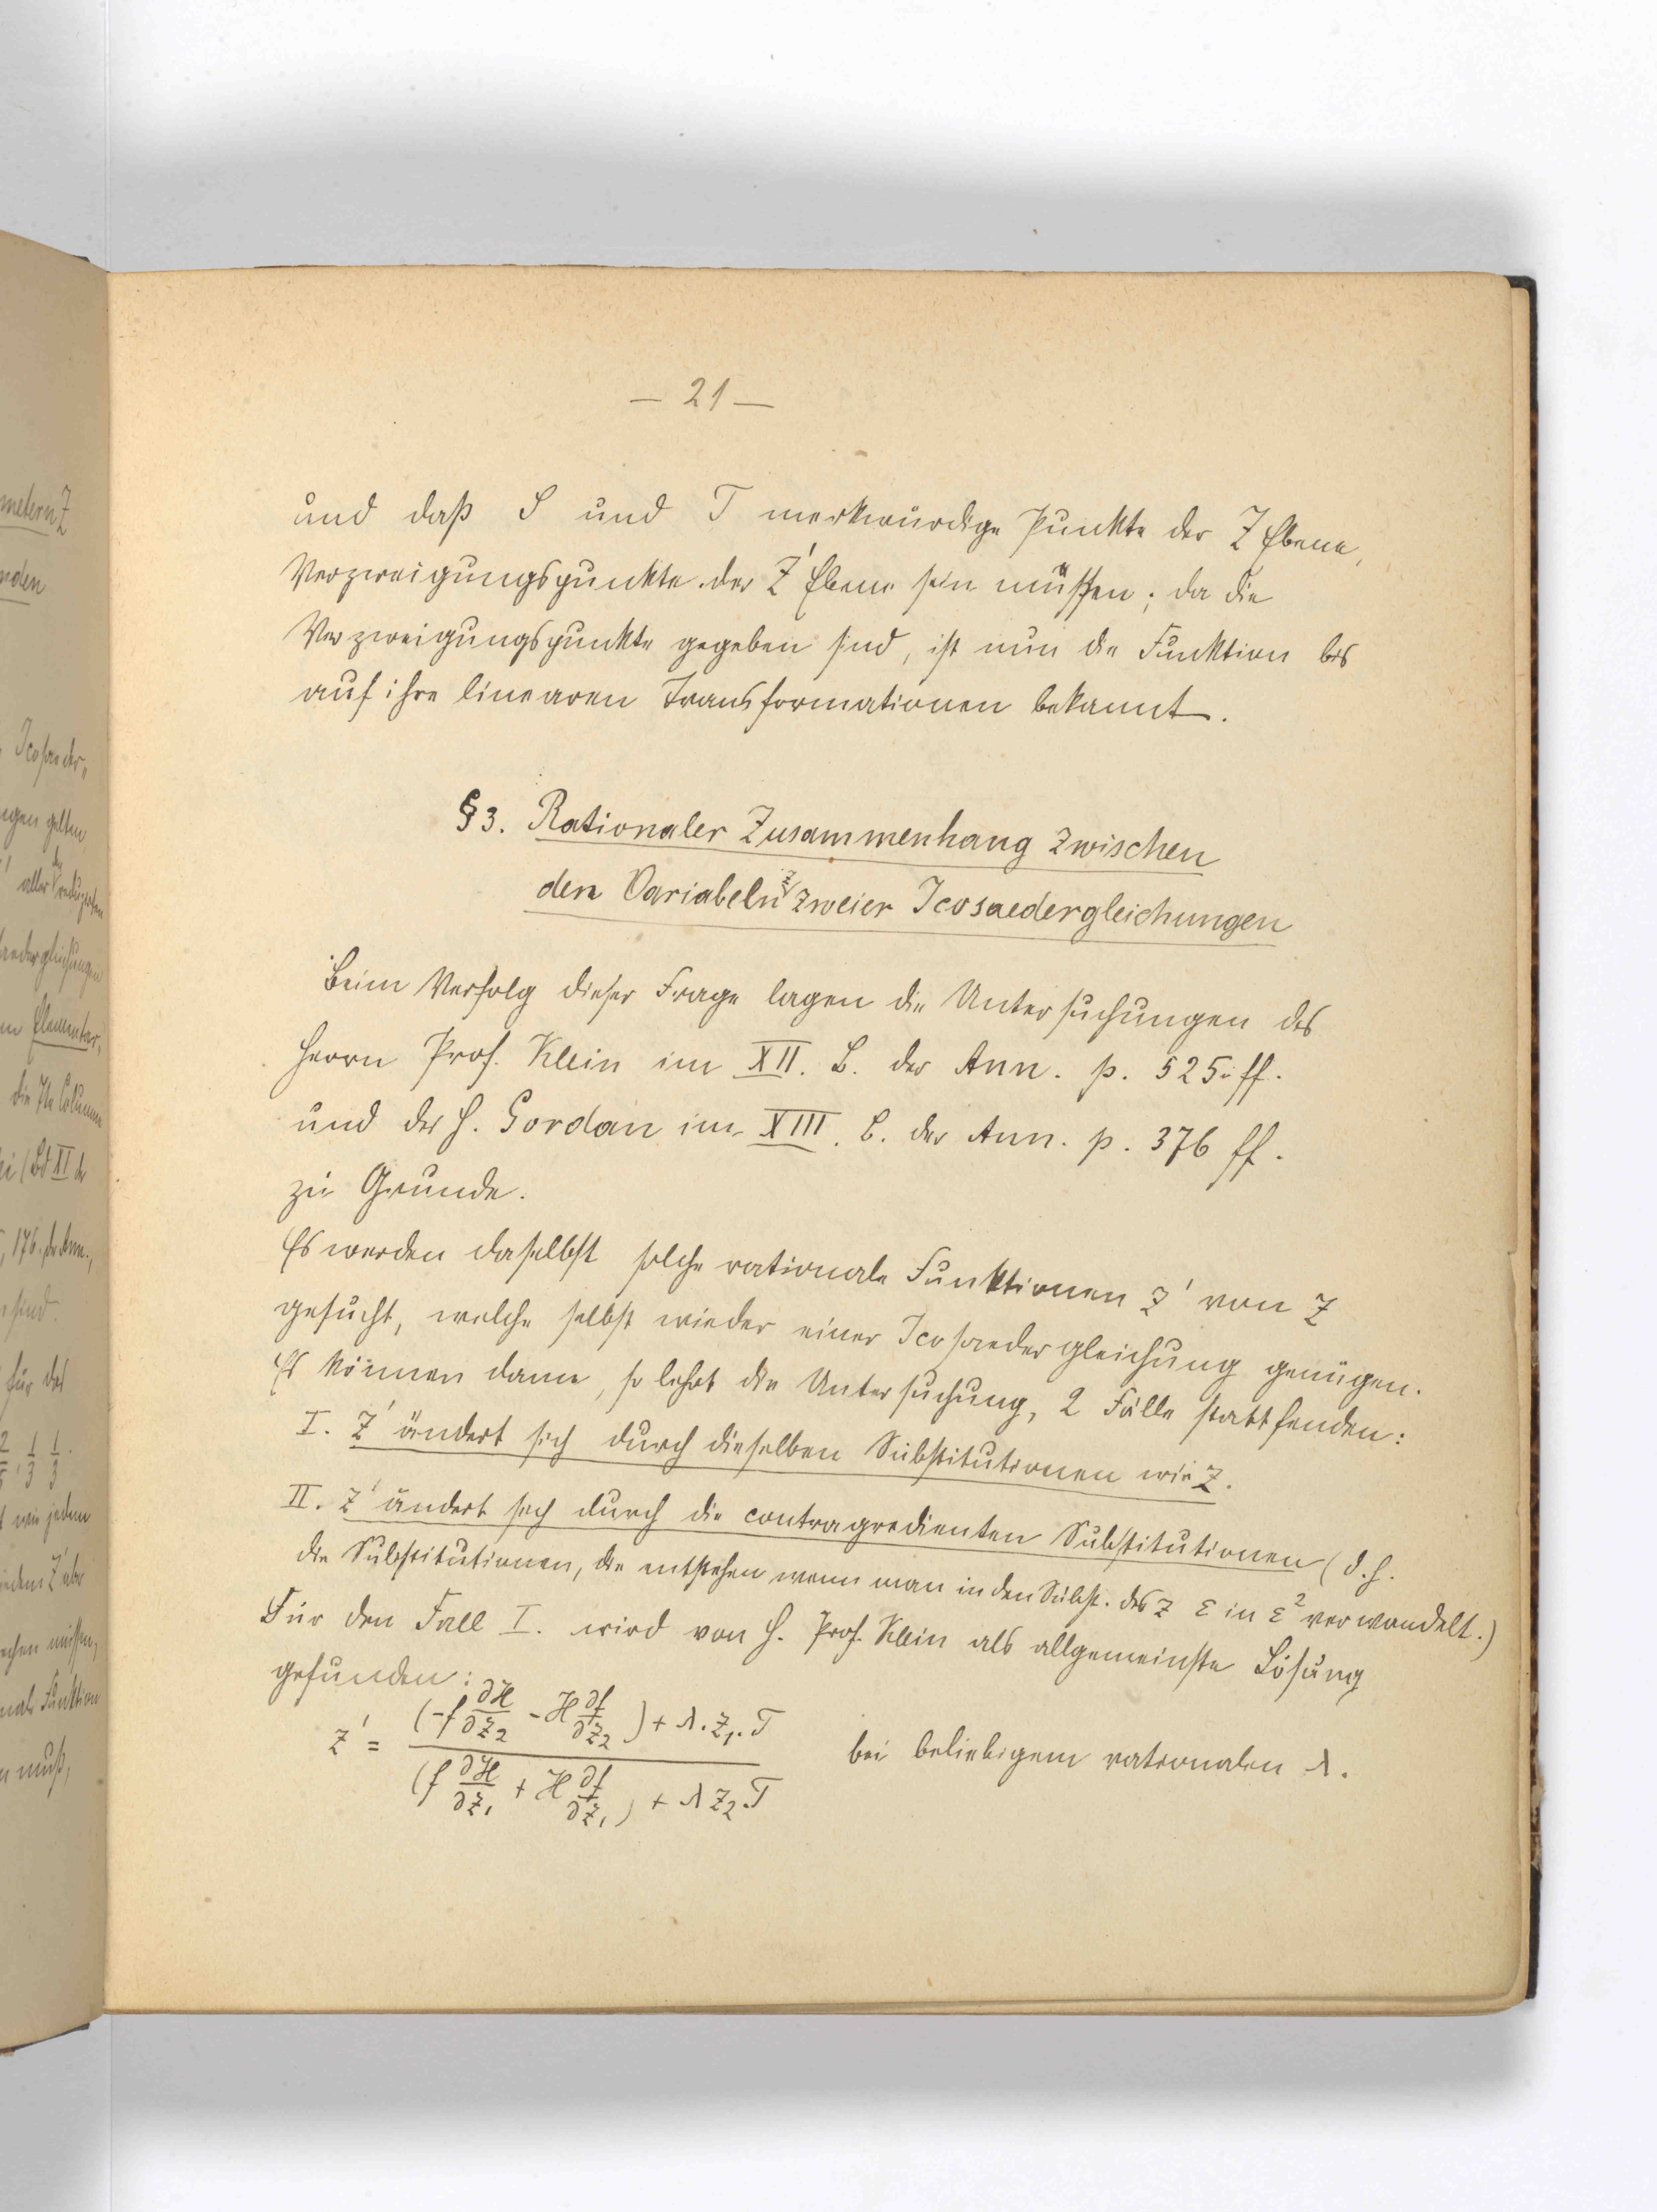 — 21 —
und daß S und T merkwürdige Punkte der Z Ebene,
Verzweigungspunkte der Z' Ebene sein müssen; da die
Verzweigungspunkte gegeben sind, ist nun die Funktion bis
auf ihre linearen Transformationen bekannt.
§3. Rationaler Zusammenhang zwischen
den Variabeln z zweier Icosaedergleichungen
Beim Verfolg dieser Frage lagen die Untersuchungen des
Herrn Prof. Klein im XII. B. der Ann. p. 525 ff.
und des H. Gordan im XIII. B. der Ann. p. 376 ff.
zu Grunde.
Es werden daselbst solche rationale Funktionen z' von z
gesucht, welche selbst wieder einer Icosaedergleichung genügen.
Es können dann, so lehrt die Untersuchung, 2 Fälle stattfinden:
I. z' ändert sich durch dieselben Substitutionen wie z.
II. z' ändert sich durch die contragredienten Substitutionen (d.h.
die Substitutionen, die entstehen wenn man in den Subst. des z ε in ε² verwandelt.)
Für den Fall I. wird von H. Prof. Klein als allgemeinste Lösung
gefunden:
z' = ((-f ∂H/∂z₂ - H ∂f/∂z₂) + λ.z₁.T) / ((f ∂H/∂z₁ + H ∂f/∂z₁) + λ z₂.T) bei beliebigem rationalen λ.
metern Z
nden
Icosaeder-
ngen gelten